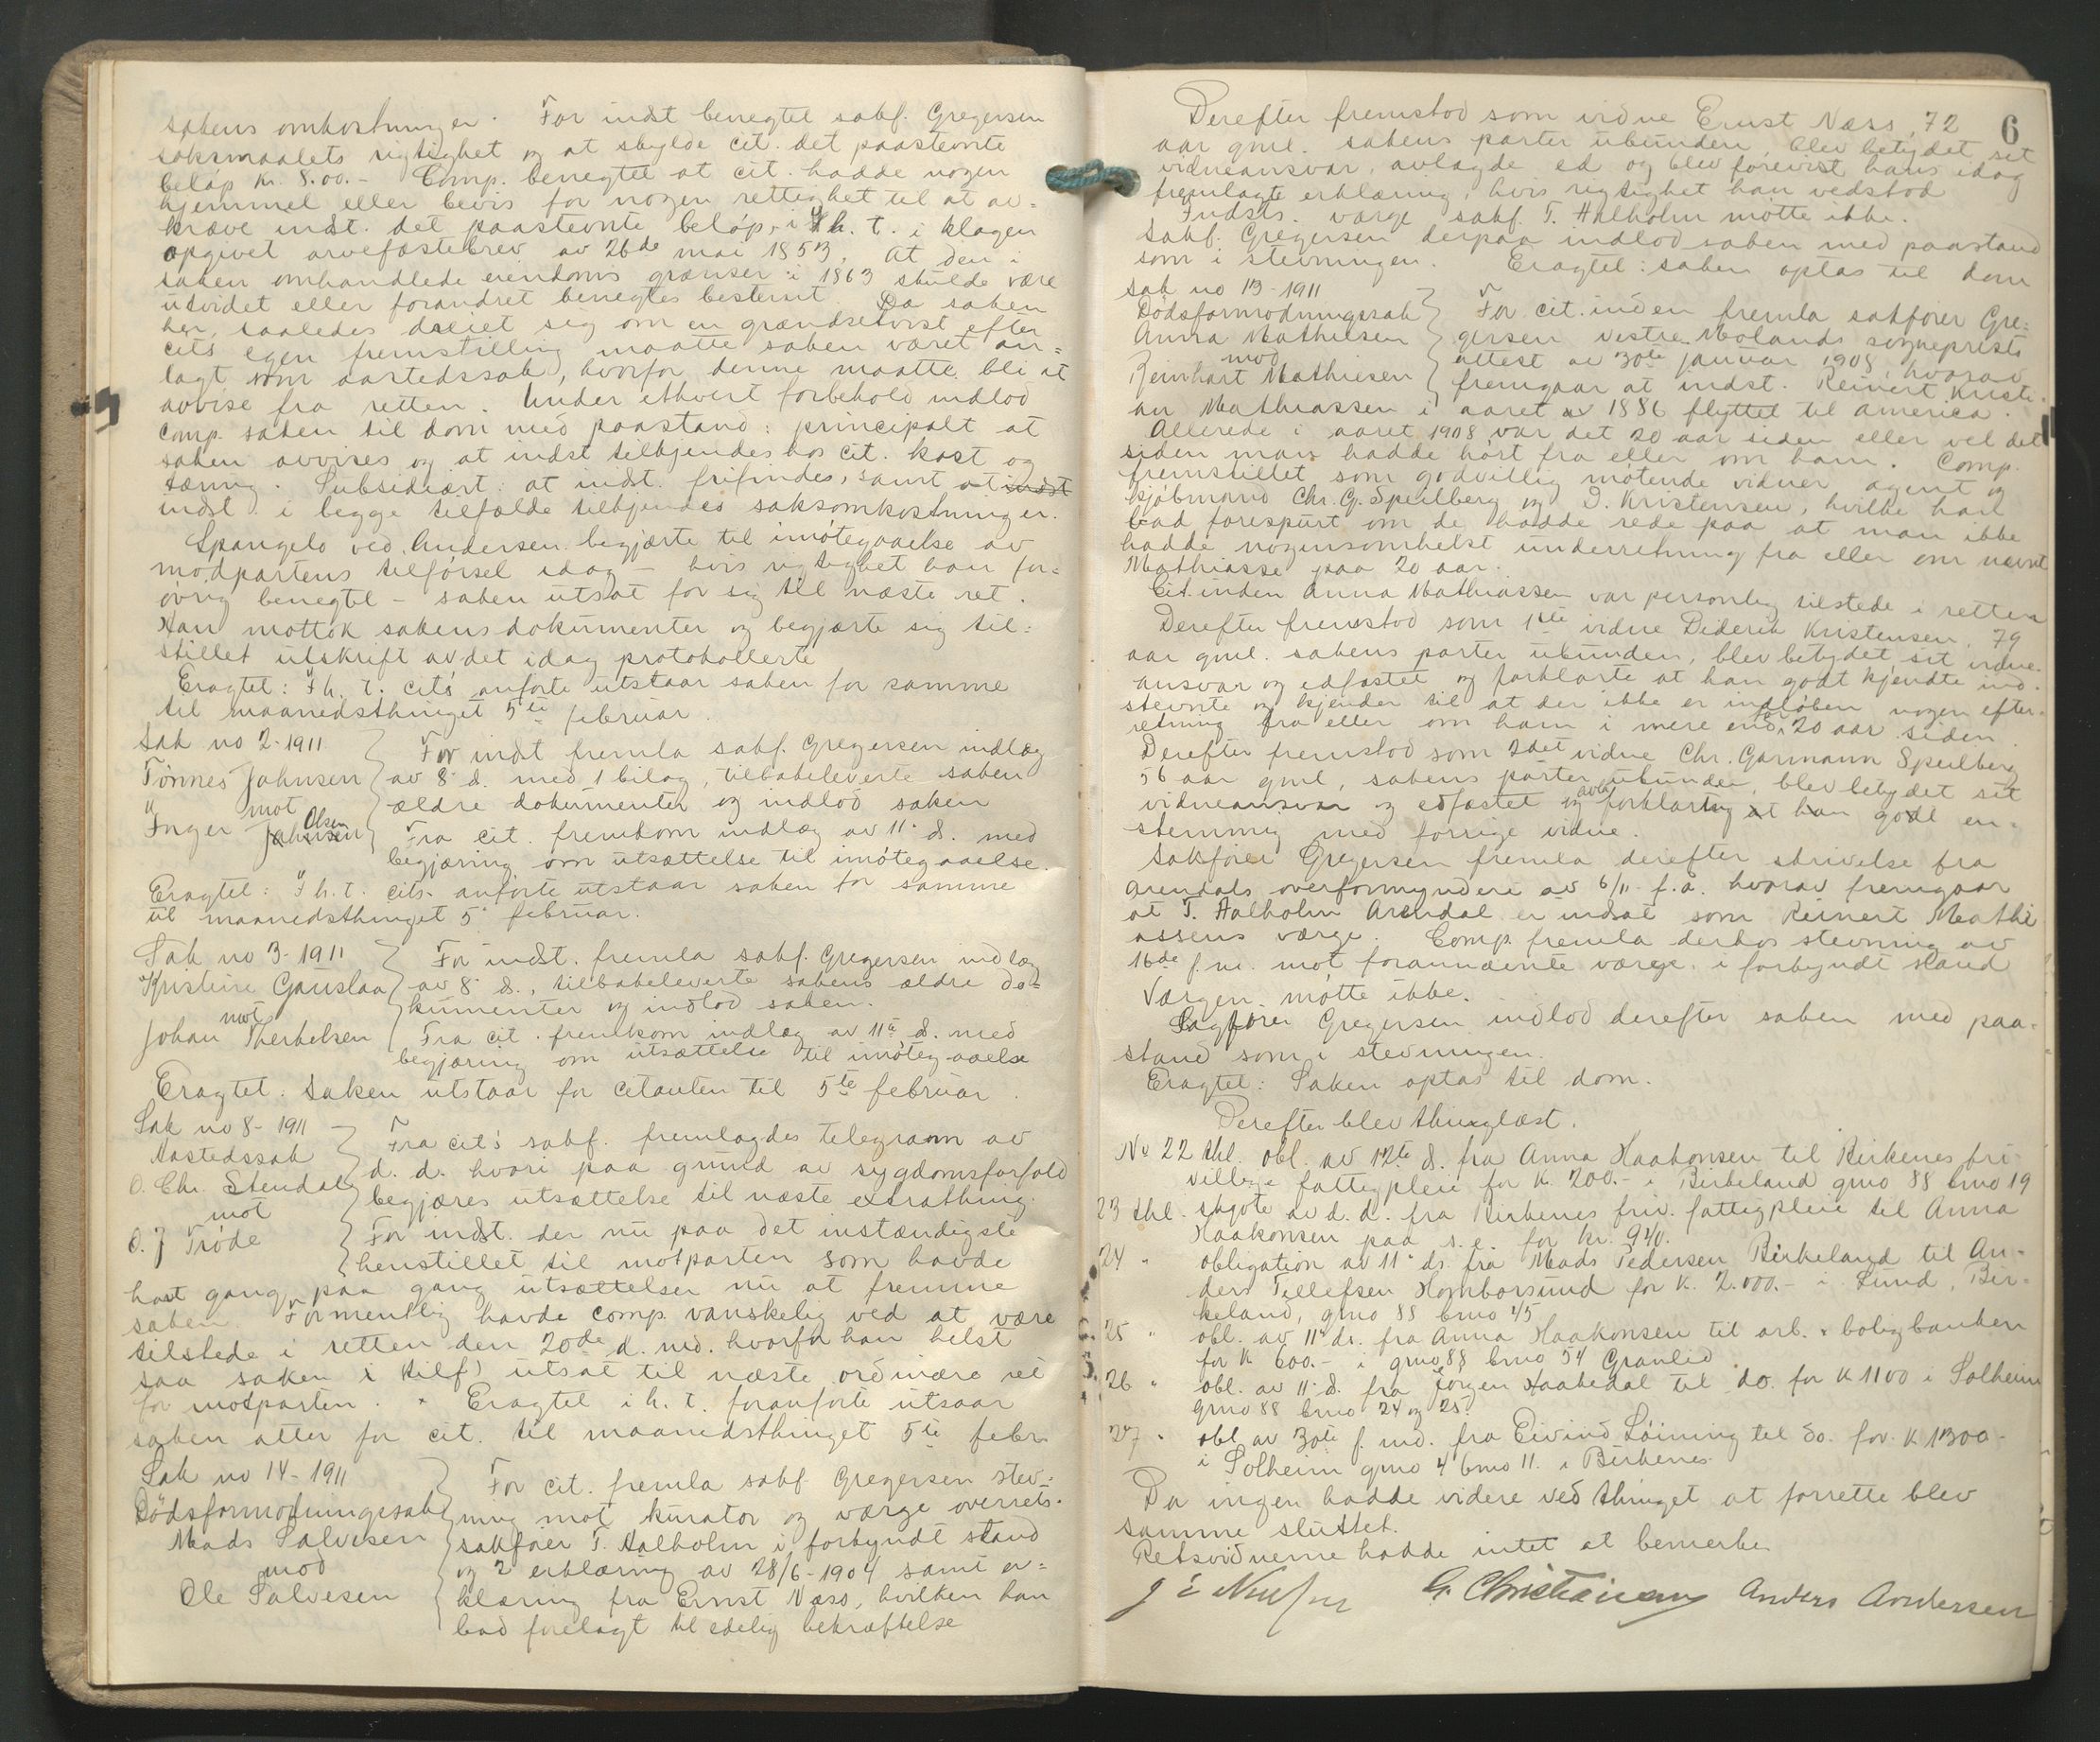 sakens omkostninger. For indst benegtet sakf. Gregersen
saksmaalets rigtighet og at skylde cit. det paastevnte
beløp kr. 8.00.- Comp. benegtet at cit. hadde nogen
hjemmel eller bevis for nogen rettighet til at av=
kræve indst. det paastevnte beløp, i h. t. i klagen
opgivet arvefæstebrev av 26de mai 1853. At den i
saken omhandlede eiendoms grænser i 1863 skulde være
utvidet eller forandret benegtes bestemt. Da saken
her, saaledes dreiet sig om en grændsetvist efter
cits egen fremstilling maatte saken været an=
lagt som aastedssak, hvorfor denne maatte bli at
avvise fra retten. Under ethvert forbehold indlod
comp. saken til dom med paastand: principalt at
saken avvises og at indst tilkjendes hos cit. kost og
tæring. Subsidiært: at indst. frifindes, samt at indst
indst i begge tilfælde tilkjendes saksomkostninger.
Spangelo ved Andersen begjærte til imøtegaaelse av
motpartens tilførsel idag - hvis rigtighet han for=
øvrig benegtet - saken utsat for sig til næste ret.
Han mottok sakens dokumenter og begjærte sig til=
stillet utskrift av det idag protokollerte
Eragtet: I h. t. cit's anførte utstaar saken for samme
til maanedsthinget 5te februar.
Sak no 2-1911
Tønnes Johnsen
mot
Inger Johnsen Olsen
For indst fremla sakf. Gregersen indlæg
av 8. d. med 1 bilag, tilbakeleverte saken
ældre dokumenter og indlod saken
Fra cit. fremkom indlæg av 11. d. med
begjæring om utsættelse til imøtegaaelse.
Eragtet: I h. t. cits. anførte utstaar saken for samme
til maanedsthinget 5. februar.
Sak no 3-1911
Kristine Gauslaa
mot
Johan Therkelsen
For indst. fremla sakf. Gregersen indlæg
av 8. d., tilbakeleverte sakens ældre do=
kumenter og indlod saken.
Fra cit. fremkom indlæg av 11te d. med
begjæring om utsættelse til imøtegaaelse
Eragtet. Saken utstaar for citanten til 5te februar.
Sak no 8-1911
Aastedssak
O. Chr. Stendal
mot
O. J Trøde
Fra cit's sakf. fremlagdes telegram av
d. d. hvori paa grund av sygdomsforfald
begjæres utsættelse til næste extrathing.
For indst. der nu paa det instændigste
henstillet til motparten som havde
hat gang paa gang utsættelser nu at fremme
saken. Formentlig havde comp. vanskelig ved at være
tilstede i retten den 20de d. md. hvorfor han helst
saa saken i tilf) utsat til næste ordinære ret
for motparten. Eragtet i h. t. foranførte utsaar
saken atter for cit. til maanedsthinget 5te febr.
Sak no 14-1911
Dødsformodningssak
Mads Salvesen
mod
Ole Salvesen
For cit. fremla sakf Gregersen stev=
ning mot kurator og værge overrets=
sakfører T. Aalholm i forkyndt stand
og 2 erklæring av 28/6-1904 samt er=
klæring fra Ernst Næss, hvilken han
bad forelagt til edelig bekræftelse
6
Derefter fremstod som vidne Ernst Næss, 72
aar gml. sakens parter ubunden, blev betydet sit
vidneansvar, avlagde ed og blev forevist hans idag
fremlagte erklæring, hvis rigtighet han vedstod
Indsts. værge sakf. T. Aalholm møtte ikke.
Sakf. Gregersen derpaa indlod saken med paastand
som i stevningen. Eragtet: saken optas til dom
Sak no 13-1911
Dødsformodningssak
Anna Mathiesen
mod
Reinhart Mathiesen
For cit. inden fremla sakfører Gre=
gersen Vestre Molands sogneprests
attest av 30te januar 1908, hvorav
fremgaar at indst. Reinert Kristi=
an Mathiassen i aaret av 1886 flyttet til America.
Allerede i aaret 1908 var det 20 aar siden eller vel det
siden man hadde hørt fra eller om ham. Comp.
fremstillet som godvillig møtende vidner agent og
kjøbmand Chr. G. Speilberg og D. Kristensen, hvilke han
bad forespurt om de hadde rede paa at man ikke
hadde nogensomhelst underretning fra eller om nævnte
Mathiasse paa 20 aar.
Cit. inden Anna Mathiassen var personlig tilstede i retten
Derefter fremstod som 1ste vidne Diderik Kristensen, 79
aar gml. sakens parter ubunden, blev betydet sit vidne-
ansvar og edfæstet og forklarte at han godt kjendte ind-
stevnte og kjender til at der ikke er indløben nogen efter-
retning fra eller om ham i mere end for 20 aar siden.
Derefter fremstod som 2det vidne Chr. Garmann Speilberg
56 aar gml, sakens parter ubunden, blev betydet sit
vidneansvar og edfæstet og avla forklaring at han godt en-
stemmig med forrige vidne.
Sakfører Gregersen fremla derefter skrivelse fra
Arendals overformynderi av 6/11 f. a. hvorav fremgaar
at T. Aalholm Arendal er indsat som Reinert Mathi
assens værge. Comp. fremla derhos stevning av
16de f. m. mot forannævnte værge i forkyndt stand
Værgen møtte ikke.
Sagfører Gregersen indlod derefter saken med paa-
stand som i stevningen.
Eragtet: Saken optas til dom.
Derefter blev thinglæst.
No 22 thl. obl. av 12te d. fra Anna Haakonsen til Birkenes fri-
villige fattigpleie for K. 200.- i Birkeland gno 88 bno 19
23 thl. skjøte av d. d. fra Birkenes friv. fattigpleie til Anna
Haakonsen paa s. e. for kr. 940.
24 " obligation av 11. ds. fra Mads Pedersen Birkeland til An-
ders Tellefsen Homborsund for K. 2.000.- i Lund, Bir-
keland, gno 88 bno 45
25 " obl. av 11. ds. fra Anna Haakonsen til arb. boligbanken
for K 600.- i gno 88 bno 54 Granlid
26 " obl. av 11. d. fra Jørgen Haabedal til do. for K 1100 i Solheim
gno 88 bno 24 og 25.
27 " obl av 30te f. md. fra Eivind Løining til do. for K 1300-
i Solheim gno 4 bno 11. i Birkenes.
Da ingen hadde videre ved thinget at forrette blev
samme sluttet.
Retsvidnerne hadde intet at bemerke
G. Christiansen Anders Andersen